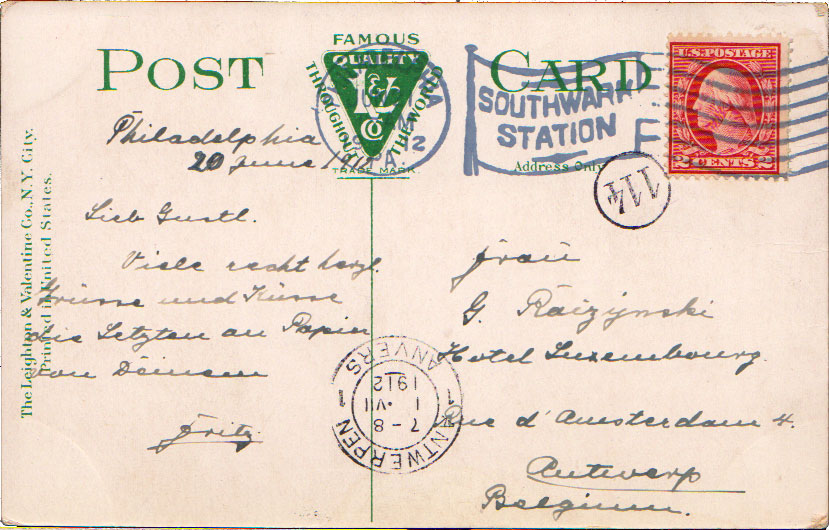 POST CARD
FAMOUS
QUALITY
THROUGHOUT THE WORLD
L&V
Co
TRADE MARK.
Address Only
The Leighton & Valentine Co., N.Y. City.
Printed in United States.
SOUTHWARK
STATION
PA.
U.S. POSTAGE
2 CENTS 2
114
Philadelphia
20 June 1912
Lieb Gustl.
Viele recht herzl.
Grüsse und Küsse
die Letzten an Papier
von Deinem
Fritz
Frau
G. Raizynski
Hotel Luxembourg.
Rue d'Amsterdam 4.
Antwerp
Belgium.
ANTWERPEN
1 1
7 - 8
1 · VII
1912
ANVERS